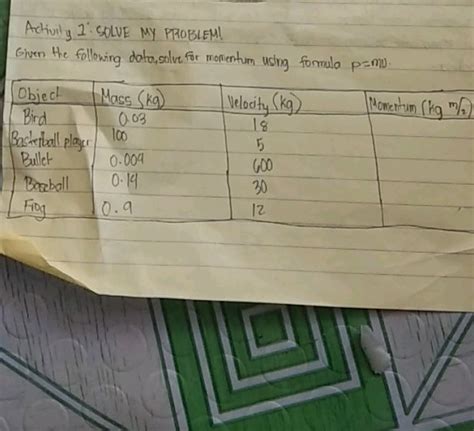 Activity 1: SOLVE MY PROBLEM!
Given the following data, solve for momentum using formula p=mv.
Object Mass (kg) Velocity (kg) Momentum (kg m/s)
Bird 0.03 18
Basketball player 100 5
Bullet 0.004 600
Baseball 0.14 30
Frog 0.9 12